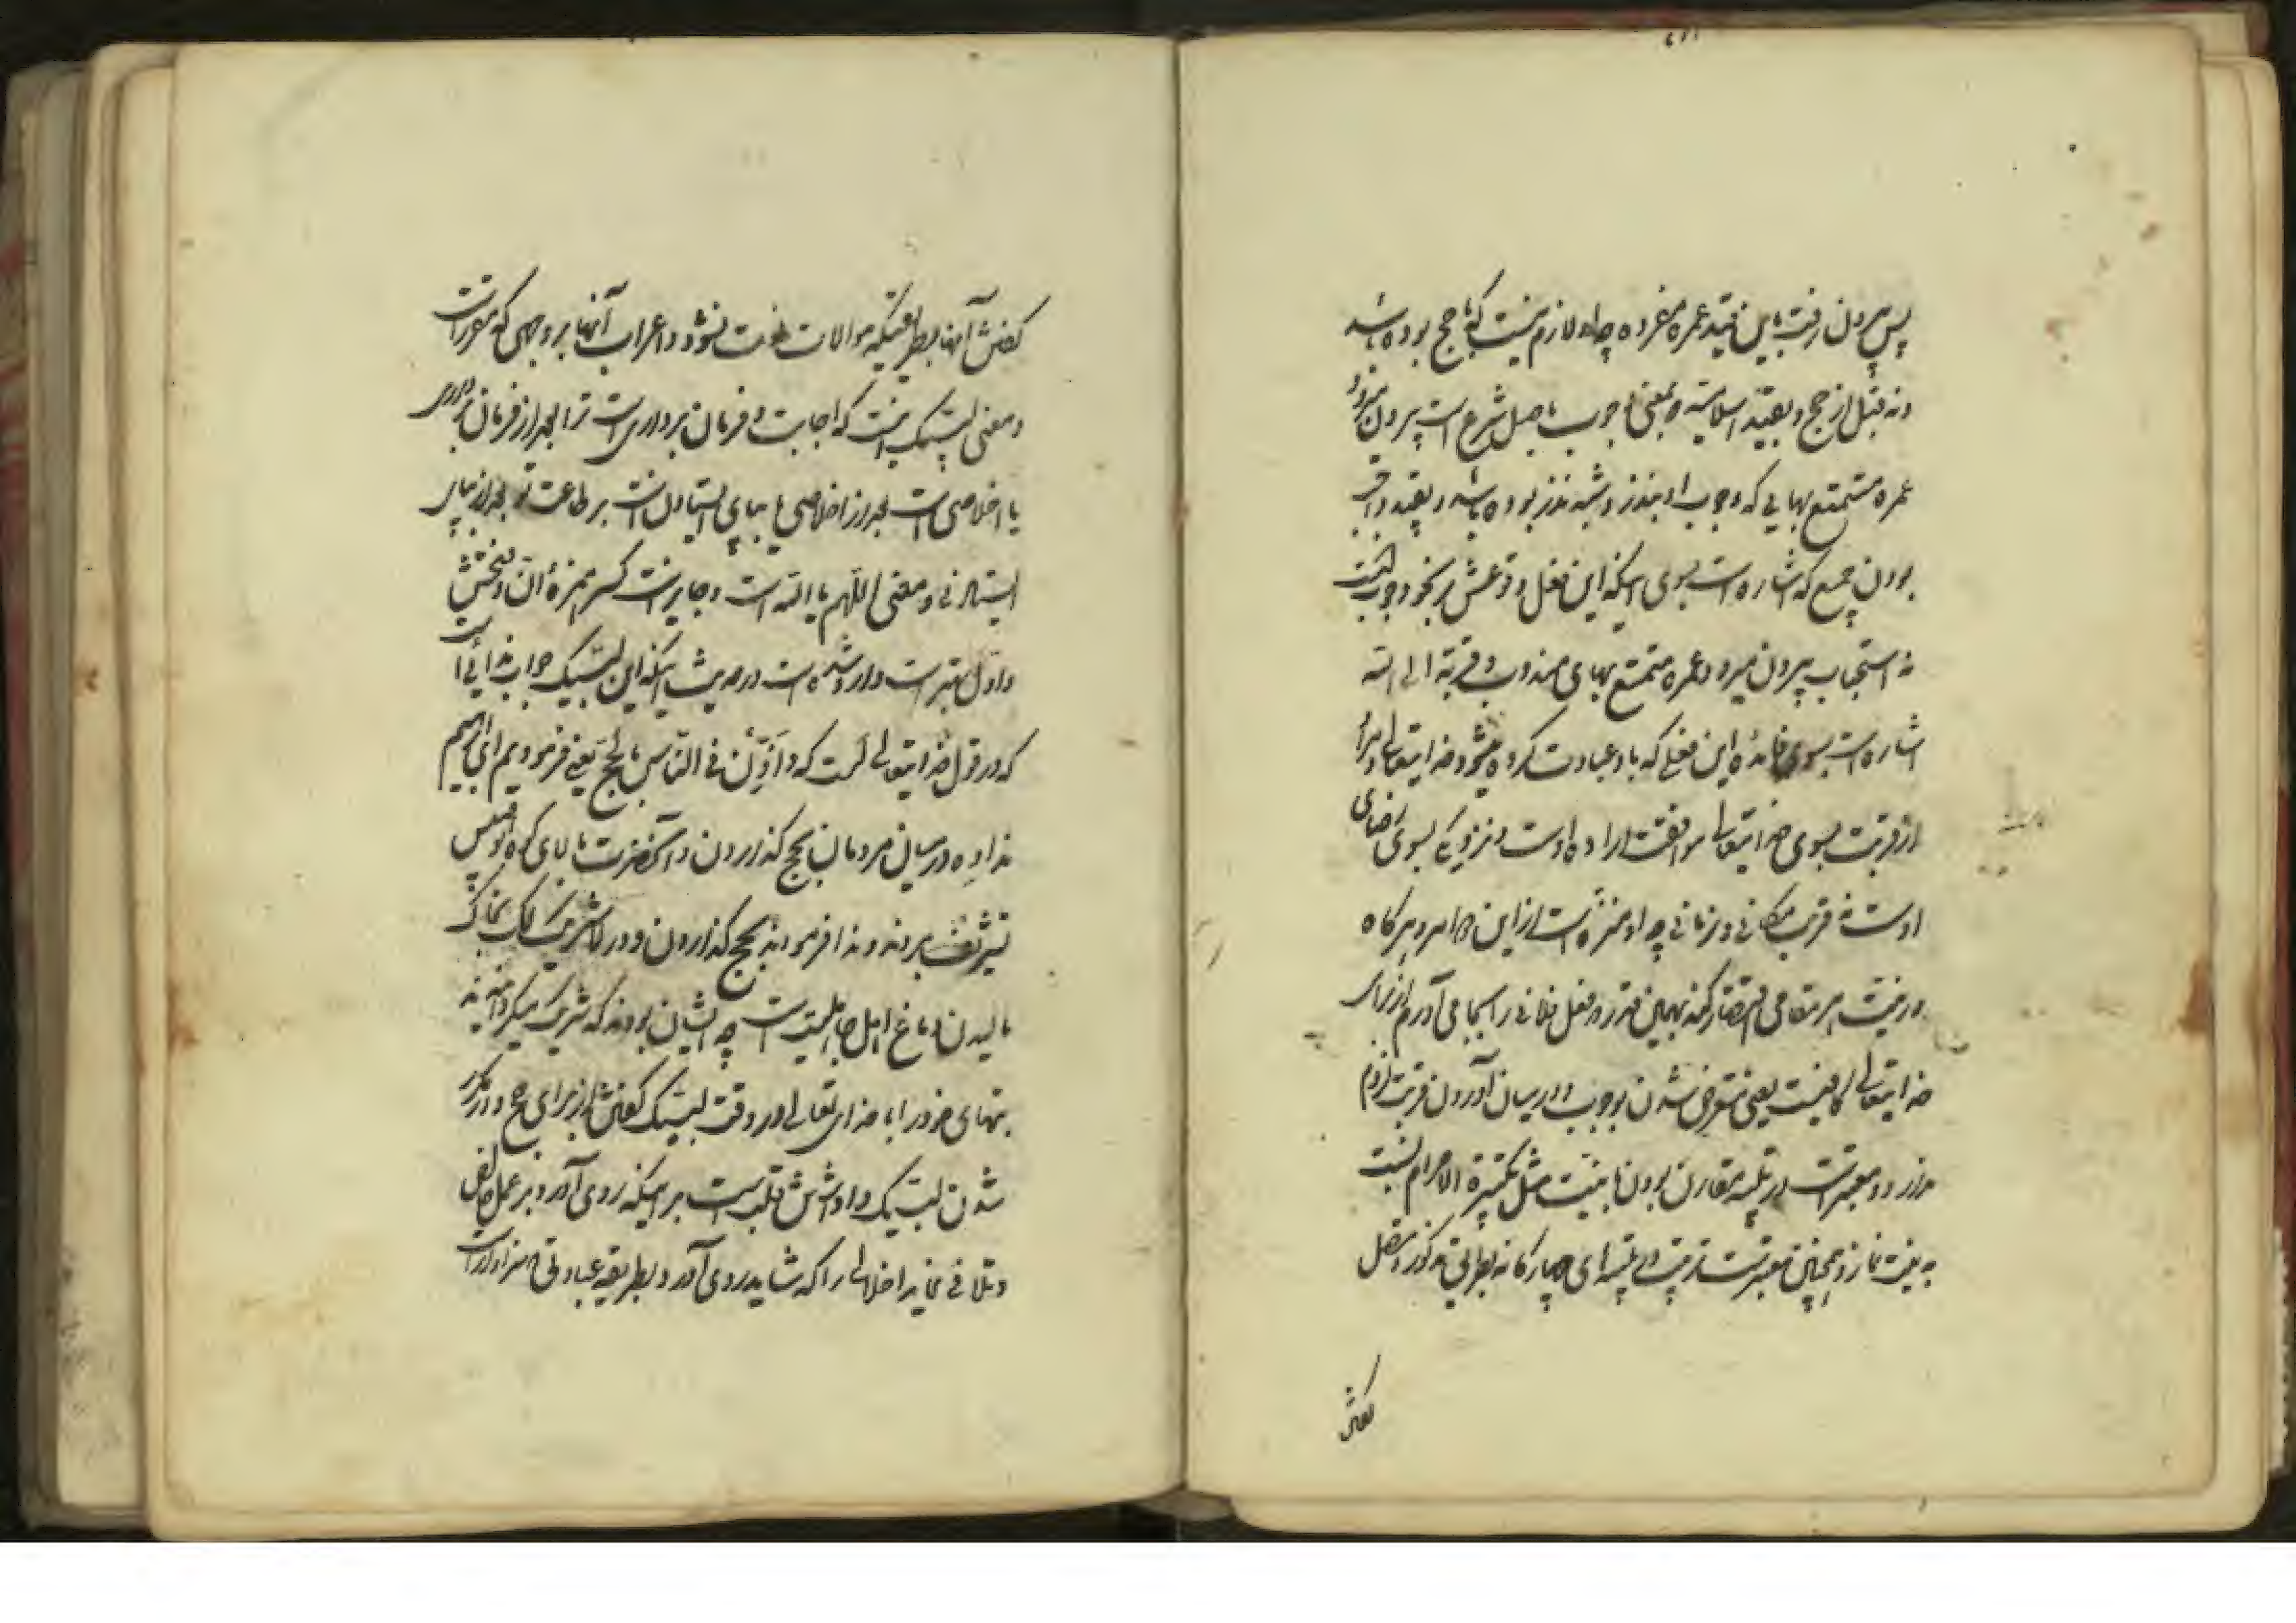 پس بیرون رفت باین قید عمره مفرده چه او لازم نیست که با حج بوده باشد
و نه قبل از حج و بقید اسلامیه و بمعنی واجب باصل شرع است بیرون میرود
عمره متمتع بهایی که وجوب او بنذر و شبه نذر بوده باشد و بقید واجب
بودن جمیع که اشاره است بسوی اینکه این فعل وقوعش بر نحو وجوبست
نه استحباب بیرون میرود عمره متمتع بهای مندوب و قربة الی الله
اشاره است بسوی این فعلی که باو عبادت کرده میشود خدایتعالی را مراد
از قربت بسوی خدایتعالی موافقت اراده اوست و نزدیکی بسوی رضای
اوست نه قرب مکانی و زمانی چه او منزه است از این دو امر و هرگاه
در نیت هر مقامی اقتصار کند بهمین قدر که فعل فلانی را بجا می آورم از برای
خدایتعالی کافیست یعنی متعرض شدن وجوب و در میان آوردن قربت لزوم
ندارد و معتبر است در تلبیه مقارن بودن با نیت مثل تکبیرة الاحرام نسبت
به نیت نماز و همچنین معتبر است ترتیب تلبیه‌ای چهارگانه بطریق مذکور و متصل
گفتن
گفتن آنها بطریقیکه موالات فوت نشود و اعراب آنها بر وجهی که مقرر است
و معنی لبیک اینست که اجابت و فرمان برداری است ترا بعد از فرمان برداری
یا اخلاصی است بعد از اخلاصی یا بپای ایستادن است بر طاعت تو بعد از بپای
ایستادنی و معنی اللهم یا الله است و جایز است کسر همزهٔ ان و فتحش
و اول بهتر است وارد شده است در حدیث اینکه این لبیک جواب ندائی است
که در قول خدایتعالی است که و اذن فی الناس بالحج یعنی فرمودیم ای ابراهیم
ندا ده در میان مردمان بحج گذاردن و آنحضرت ببالای کوه ابوقبیس
تشریف بردند و ندا فرمودند بحج گذاردن و در لا شریک لک بخاک
مالیدن دماغ اهل جاهلیت است چه ایشان بودند که شریک میکردانیدند
بتهای خود را با خدای تعالی در وقت لبیک گفتن از برای حج و در مکرر
شدن لبیک واداشتن قلب است بر اینکه روی آورد بر عمل خالص
و تلافی نماید اخلالی را که شاید روی آورد بطریقه عبادتی که سزاوار است